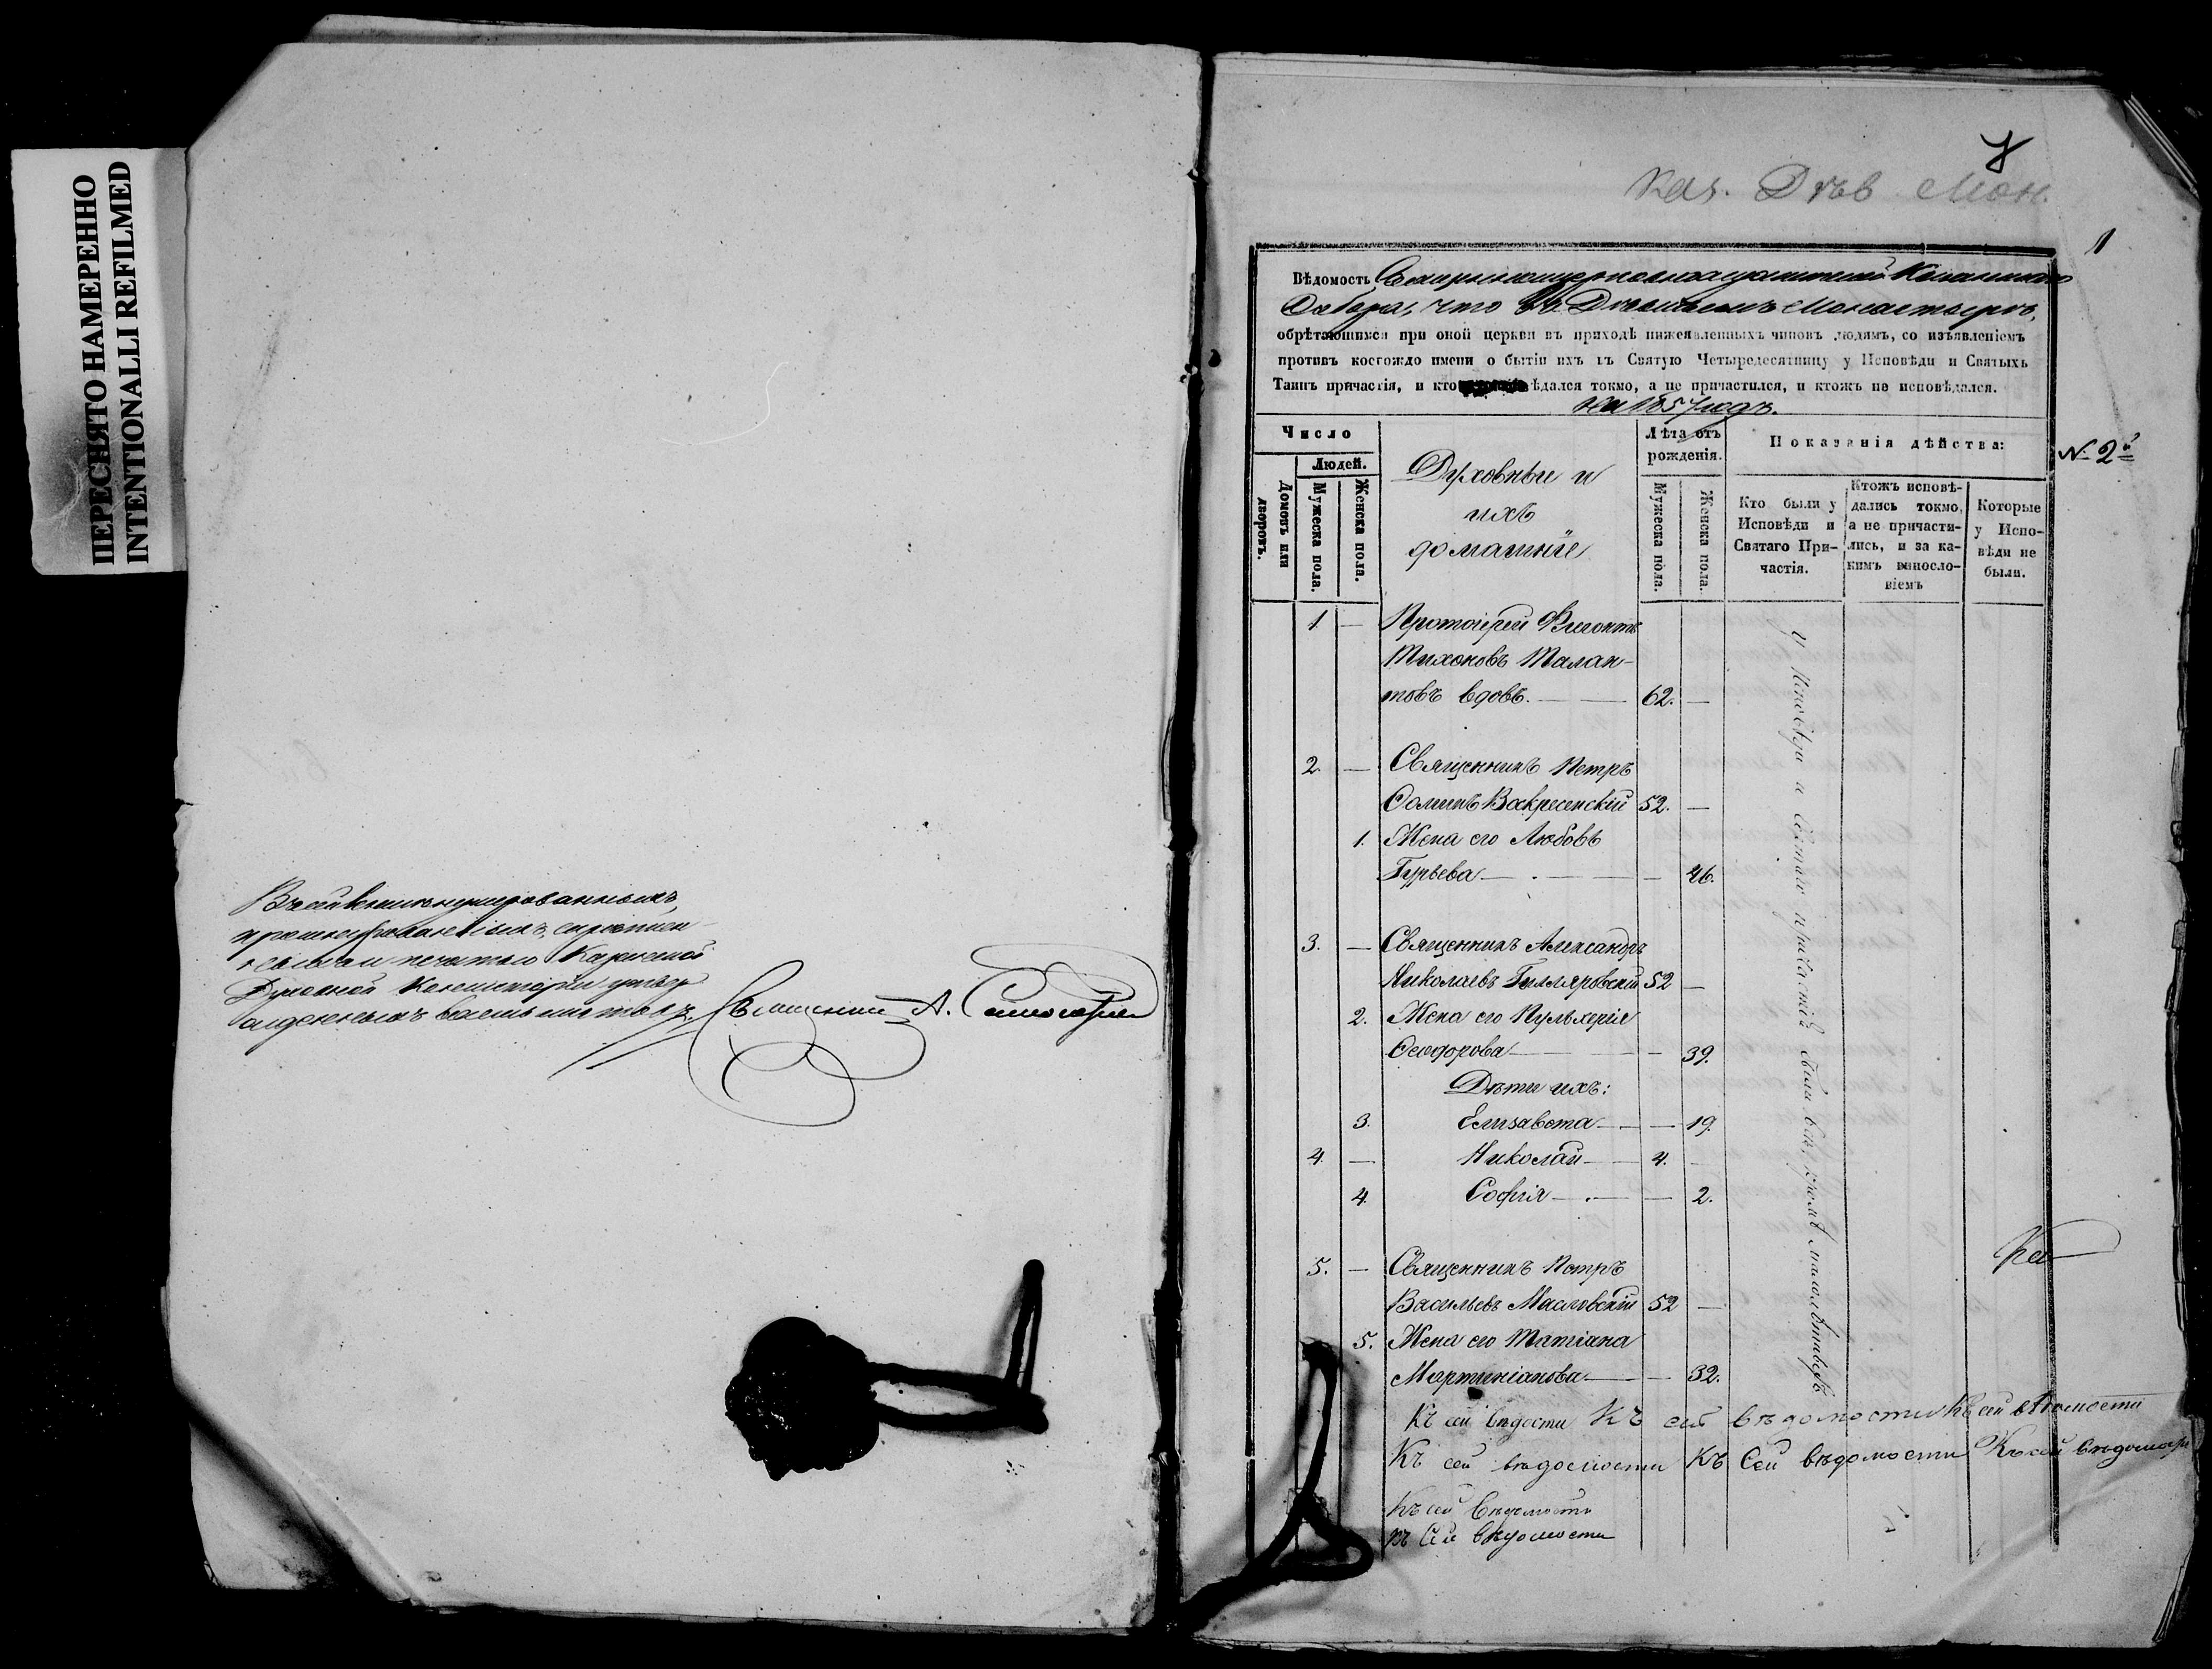 ПЕРЕСНЯТО НАМЕРЕННО
INTENTIONALLI REFILMED
нумерованныхъ,
печатью Казанской
Духовной Консисторіи
Священникъ А.
8
Каз. Дѣв Мон.
1
Вѣдомость Казанскаго
Собора, что въ Дѣвичьемъ Монастырѣ,
обрѣтающимся при оной церкви въ приходѣ нижеявленныхъ чиновъ людямъ, со изъявленіемъ
противъ коегождо имени о бытіи ихъ въ Святую Четыредесятницу у Исповѣди и Святыхъ
Таинъ причастія, и кто ѣдался токмо, а не причастился, и ктожъ не исповѣдался.
на 1857 годъ.
Число
Людей.
Домовъ или дворовъ.
Мужеска пола.
Женска пола.
Духовные и
ихъ
домашніе
Лѣта отъ
рожденія.
Мужеска пола.
Женска пола.
Показанія дѣйства:
Кто были у
Исповѣди и
Святаго При-
частія.
Ктожъ исповѣ-
дались токмо,
а не причасти-
лись, и за ка-
кимъ винослo-
віемъ
Которые
у Испо-
вѣди не
были.
N. 2й
1. — Протоіерей
Тихоновъ Талан-
товъ вдовъ. — 62. —
2. — Священникъ Петръ
Ѳоминъ Воскресенскій 52. —
1. Жена его Любовь
Гурьева — — 46.
3. — Священникъ Александръ
Николаевъ Гилляровскій 52 —
2. Жена его Пульхерія
Ѳеодорова — — 39.
Дѣти ихъ:
3. Елизавета — — 19.
4. — Николай — 4. —
4. Софія — — 2.
5. — Священникъ Петръ
Васильевъ Масловскій 52 —
5. Жена его Татіана
Мартиніанова — — 32.
У Исповѣди и Святаго причастія были всѣ, кромѣ малолѣтнихъ
Къ сей вѣдости Къ сей вѣдомости Къ сей вѣдомости
Къ сей вѣдомости Къ Сей вѣдомости Къ сей
Къ сей вѣдомости
Къ Сей вѣдомости